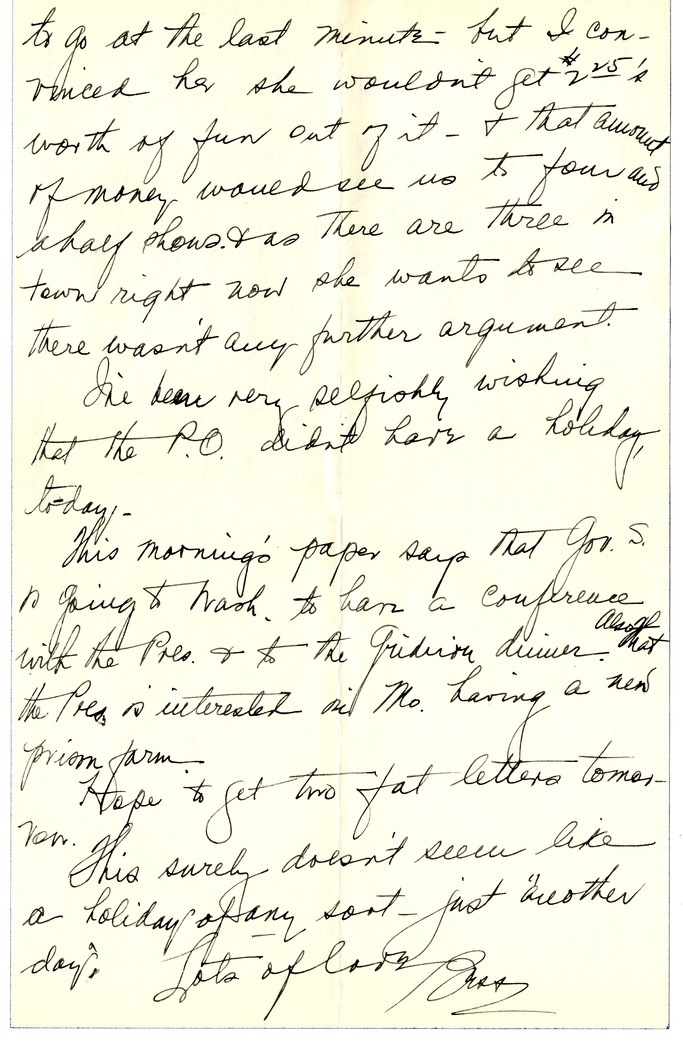 to go at the last minute - but I con-
vinced her she wouldn't get $2 25's
worth of fun out of it - & that amount
of money would see us to four and
a half shows. & as there are three in
town right now she wants to see
there wasn't any further argument.
I've been very selfishly wishing
that the P.O. didn't have a holiday,
to-day. -
This morning's paper says that Gov. S.
is going to Wash. to have a conference
with the Pres. & to the Gridiron dinner. Also that
the Pres. is interested in Mo. having a new
prison farm.
Hope to get two fat letters tomor-
row.
This surely doesn't seem like
a holiday of any sort - just "another
day".
Lots of love Bess